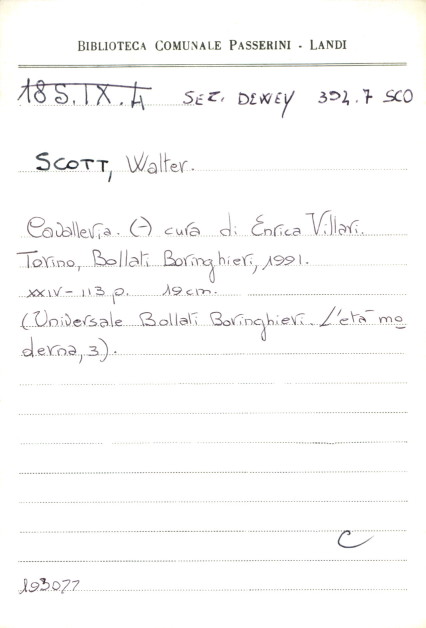 BIBLIOTECA COMUNALE PASSERINI - LANDI
185.IX.4 SEZ. DEWEY 394.7 SCO
SCOTT, Walter.
Cavalleria. (-) cura di Enrica Villari.
Torino, Bollati Boringhieri, 1991.
XXIV - 113 p. 19 cm.
(Universale Bollati Boringhieri. L'età mo
derna, 3).
C
193077